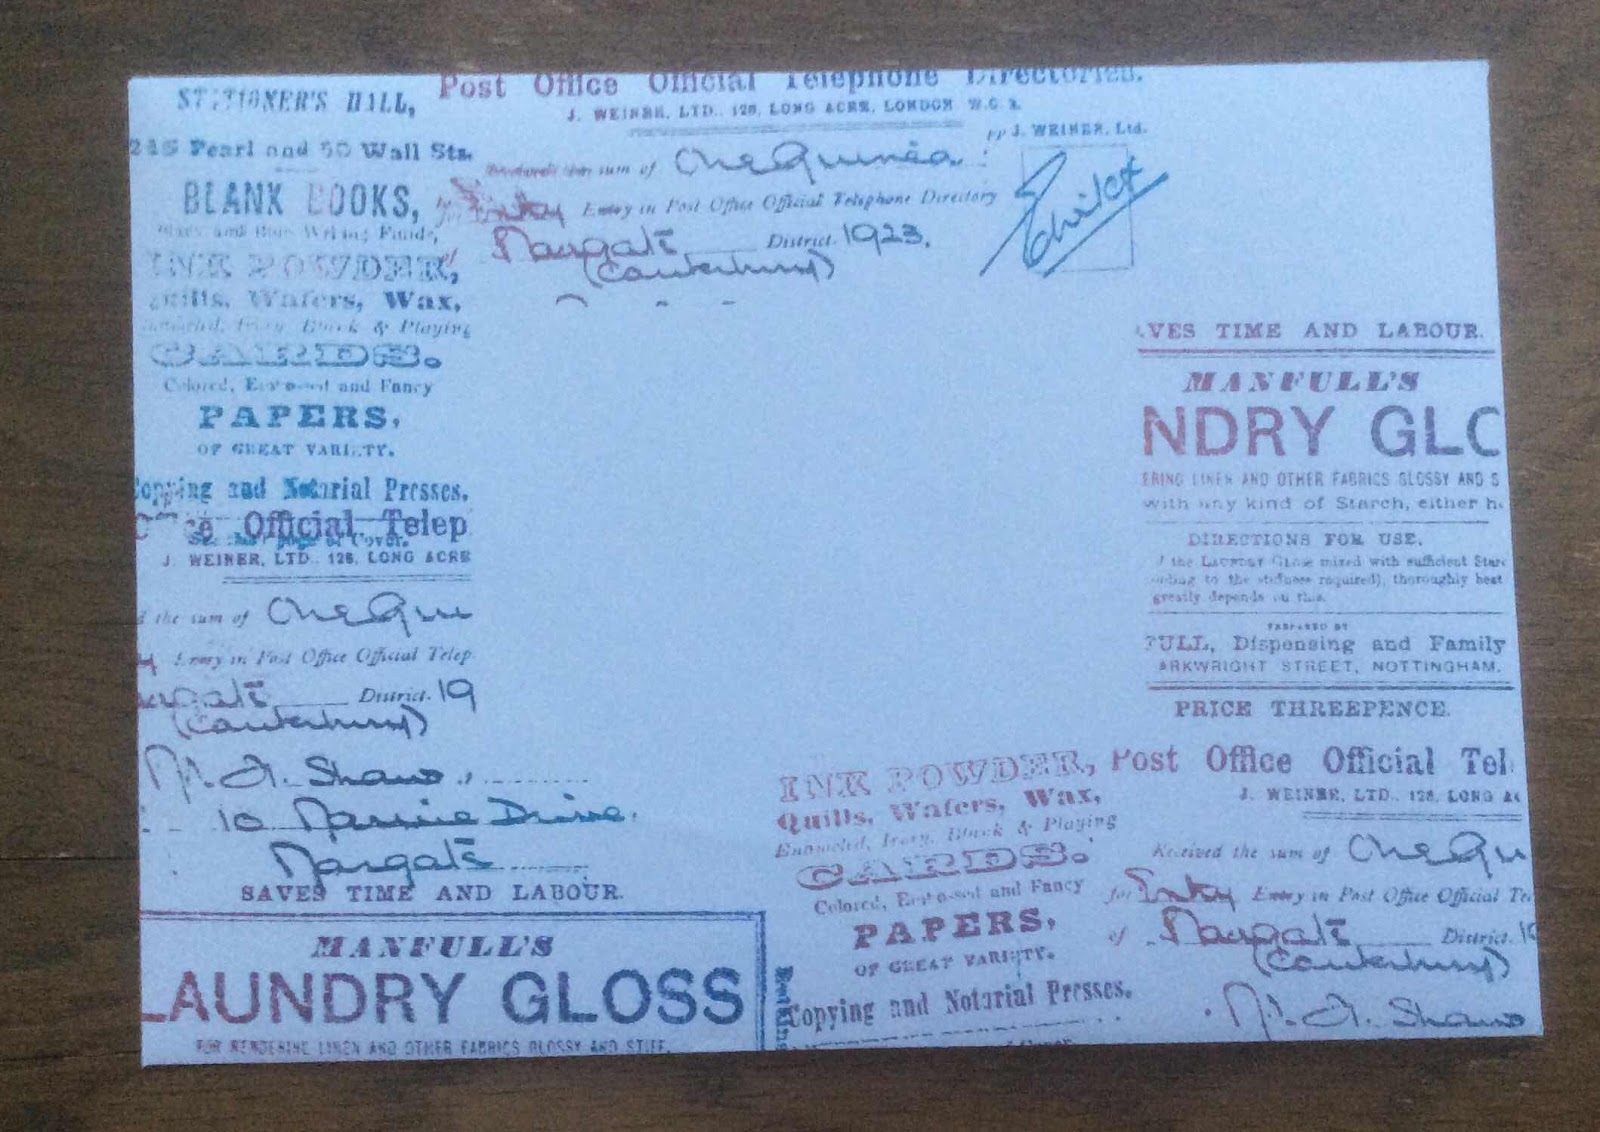 STATIONER'S HALL,
245 Pearl and 50 Wall Sts.
BLANK BOOKS,
INK POWDER,
Quills, Wafers, Wax,
Enameled, Ivory, Black & Playing
CARDS.
Colored, Embossed and Fancy
PAPERS,
OF GREAT VARIETY.
Copying and Notarial Presses.
Office Official Telep
page of Cover.
J. WEINER, LTD.. 128, LONG ACRE
d the sum of One Gui
y Entry in Post Office Official Telep
argate District. 19
(Canterbury)
Shaw
10 Marine Drive.
Margate
SAVES TIME AND LABOUR.
MANFULL'S
LAUNDRY GLOSS
FOR RENDERING LINEN AND OTHER FABRICS GLOSSY AND STIFF.
Post Office Official Telephone Directories.
J. WEINER, LTD.. 128, LONG ACRE, LONDON W.C.2.
pp J. WEINER, Ltd.
Received the sum of One Guinea
for Inky Entry in Post Office Official Telephone Directory
Margate District. 1923.
(Canterbury)
AVES TIME AND LABOUR.
MANFULL'S
NDRY GLO
ERING LINEN AND OTHER FABRICS GLOSSY AND S
with any kind of Starch, either h
DIRECTIONS FOR USE.
f the LAUNDRY GLOSS mixed with sufficient Star
ording to the stiffness required), thoroughly beat
greatly depends on this.
PREPARED BY
FULL, Dispensing and Family
ARKWRIGHT STREET, NOTTINGHAM.
PRICE THREEPENCE.
INK POWDER,
Quills, Wafers, Wax,
Enameled, Ivory, Black & Playing
CARDS.
Colored, Embossed and Fancy
PAPERS,
OF GREAT VARIETY.
Copying and Notarial Presses.
Post Office Official Tel
J. WEINER, LTD.. 128, LONG AC
Received the sum of One Gu
for Inky Entry in Post Office Official Te
of Margate District. 19
(Canterbury)
Shaw